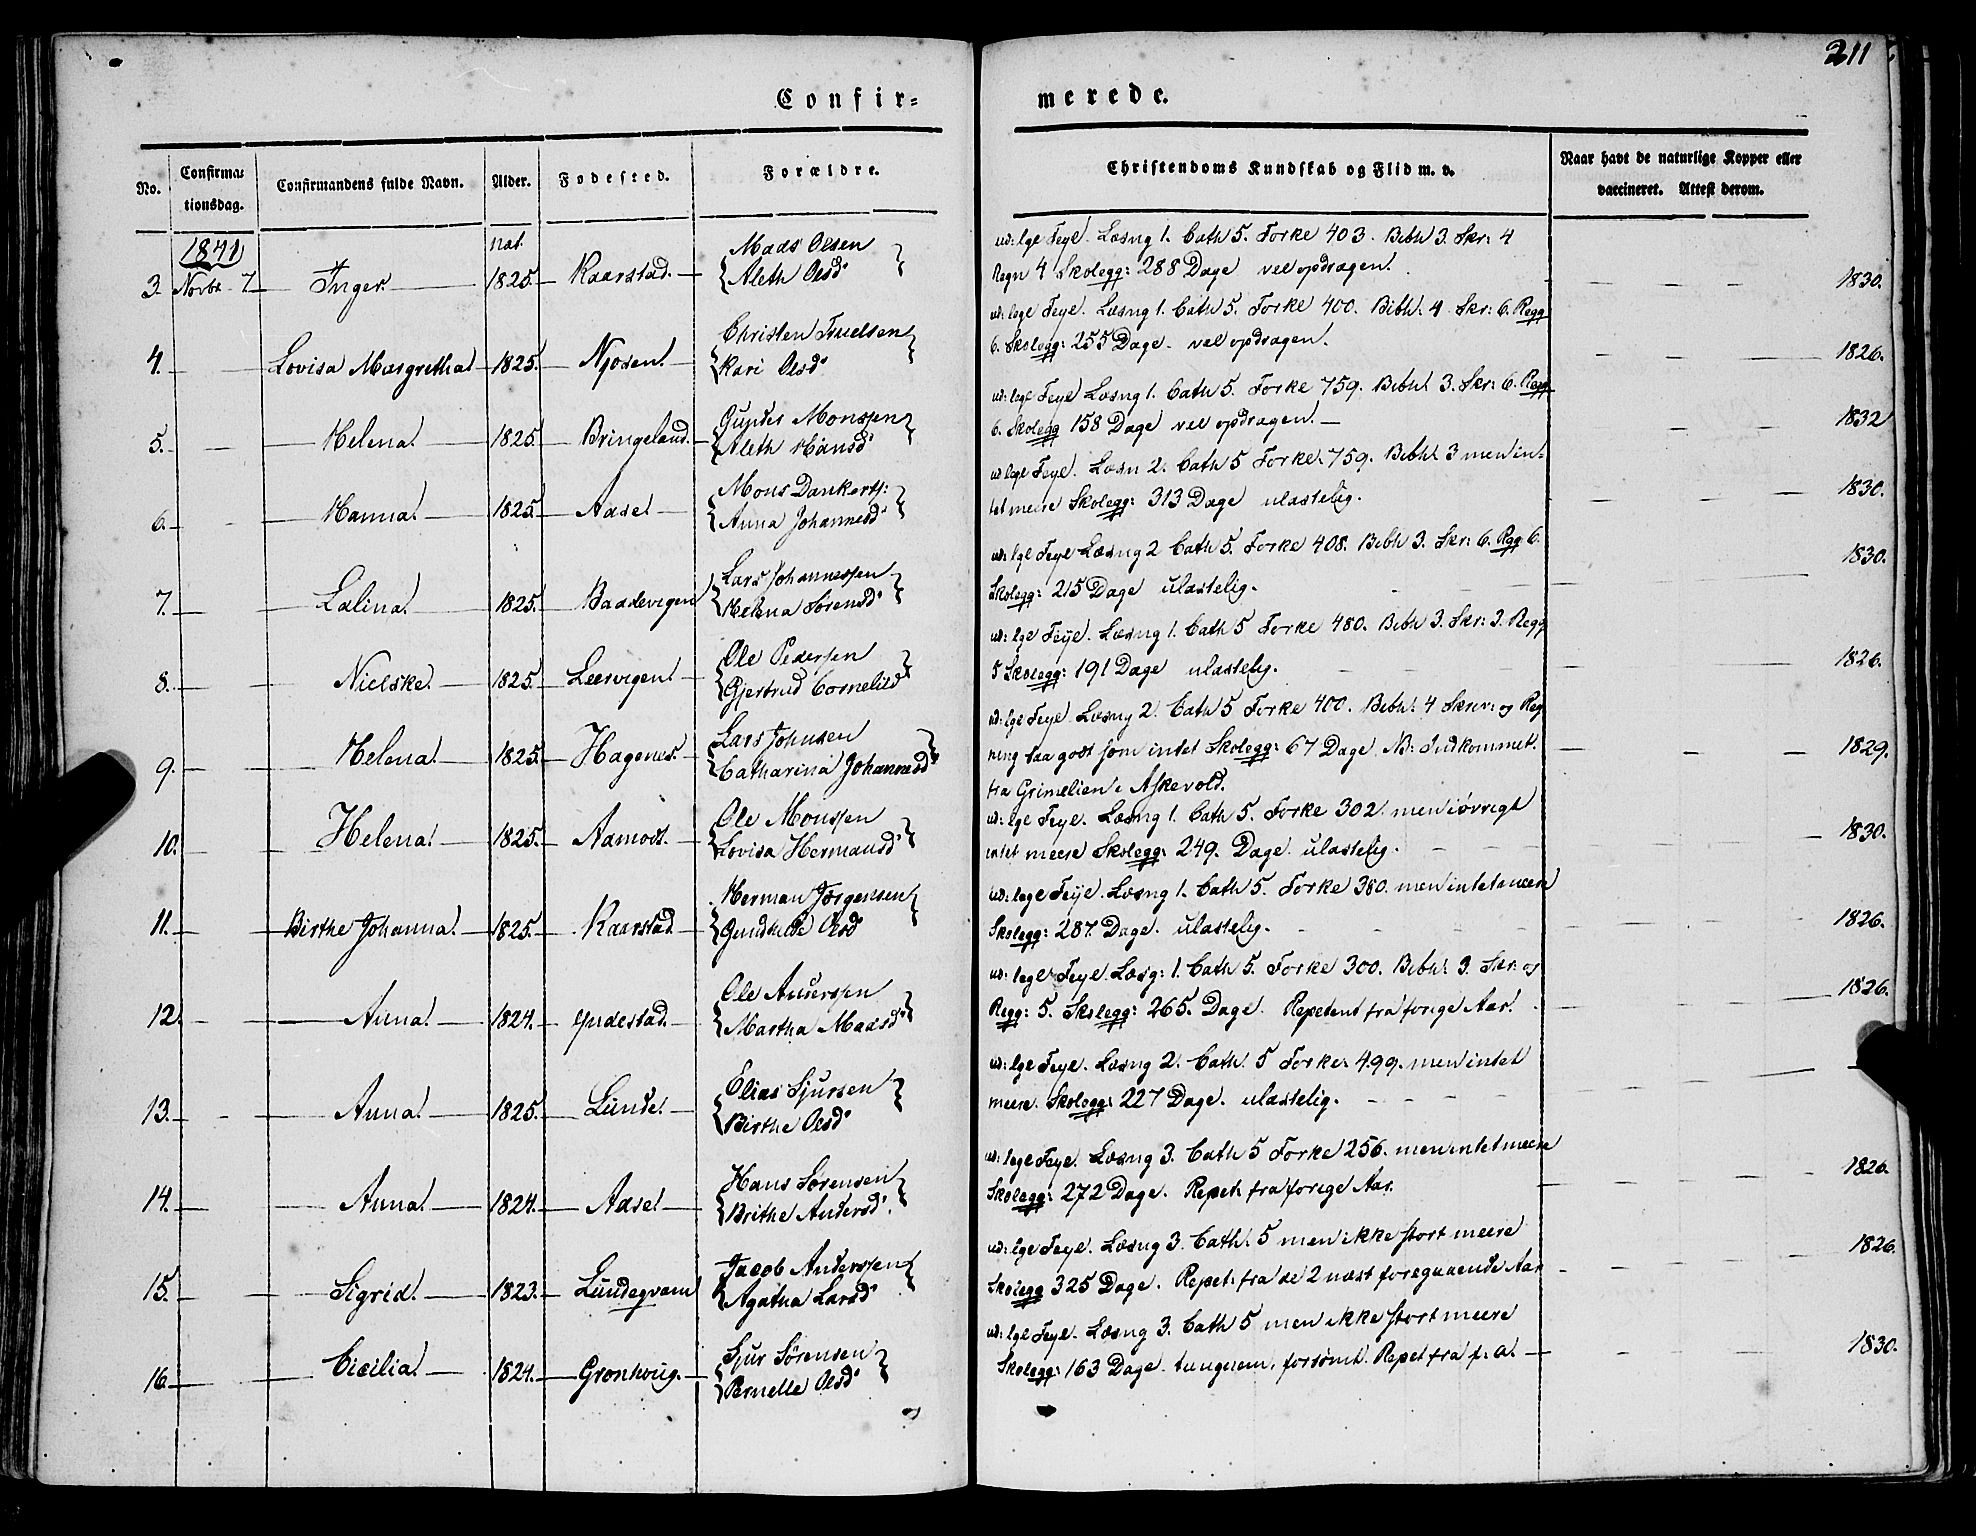 211
Confir=
merede.
No.
Confirma=
tionsdag.
Confirmandens fulde Navn.
Alder.
Fødested.
Forældre.
Christendoms Kundskab og Flid m. v.
Naar havt de naturlige Kopper eller
vaccineret. Attest derom.
1841
nat.
3. Novbr 7 Inger. 1825. Kaarstad. Mads Olsen
Aleth Olsd
Feye. Læsng 1. Cath 5. Forke 403. Bibh 3. Skr: 4
Regn 4 Skolegg: 288 Dage vel opdragen.
1830.
4. Lovisa Margretha 1825. Njosen. Christen Truelsen
Kari Olsd
Feye. Læsng 1. Cath 5. Forke 400. Bibh. 4 Skr: 6. Regg
6. Skolegg: 255 Dage. vel opdragen.
1826.
5. Helena 1825 Bringeland. Monssen
Aleth Hansd
Feye Læsng 1. Cath 5. Forke 759. Bibh 3. Skr: 6. Regg
6. Skolegg 158 Dage vel opdragen.
1832
6. Hanna 1825. Aase Mons Dankerts:
Anna Johannesd
Feye. Læsn 2. Cath 5 Forke. 759. Bibh 3 men in-
tet meere Skolegg: 313 Dage ulastelig.
1830.
7. Lalina 1825. Baadevigen Lars Johannessen
Helena Sørensd
Feye Læsng 2 Cath 5. Forke 408. Bibh 3. Skr: 6. Regg 6.
Skolegg: 215 Dage ulastelig.
1830.
8. Nielske. 1825. Leervigen Ole Pedersen
Gjertrud Cornelisd
Feye. Læsng 1. Cath 5 Forke 480. Bibh 3. Skr: 3. Regg
5 Skolegg: 191 Dage ulastelig.
1826.
9. Helena. 1825. Hagenes. Lars Johnsen
Catharina Johannesd
Feye. Læsng 2. Cath 5 Forke 400. Bibh. 4 Skriv: og Reg
ning saa godt som intet Skolegg: 67 Dage. NB: Indkommet
fra Grimelien i Askevold.
1829.
10. Helena. 1825. Aamodt. Ole Monssen
Lovisa Hermansd
Feye. Læsng 1. Cath 5. Forke 302. men iøvrigt
intet meere Skolegg: 249. Dage. ulastelig.
1830.
11. Birthe Johanna. 1825. Kaarstad Herman Jørgensen
Gundhilde Olsd
Feye. Læsng 1. Cath 5. Forke 380. men intet meere
Skolegg: 287. Dage. ulastelig.
1826.
12. Anna. 1824. Ole Anderssen
Martha Madsd
Feye. Læsg: 1. Cath 5. Forke 300. Bibh: 3. Skr: og
Regg: 5. Skolegg: 265. Dage. Repetent fra forige Aar.
1826.
13. Anna. 1825. Lunde Elias Sjursen
Birthe Olsd
Feye. Læsng 2. Cath. 5 Forke: 499. men intet
meere. Skolegg: 227 Dage. ulastelig.
14. Anna. 1824. Aase Hans Sørensen
Brithe Andersd
Feye. Læsng 3. Cath 5 Forke 256. men intet meere
Skolegg: 272 Dage. Repet: fra forige Aar.
1826.
15. Sigrid. 1823. Lundeqvam Jacob Anderssen
Agatha Larsd
Feye. Læsng 3. Cath. 5 men ikke stort meere
Skolegg 325 Dage. Repet: fra de 2 næst foregaaende Aar
1826.
16. Cicilia. 1824. Grønhoug. Sjur Sørensen
Pernelle Olsd
Feye. Læsng 3. Cath 5 men ikke stort meere
Skolegg: 163 Dage. tungnem. forsømt. Repet fra f: a.
1830.